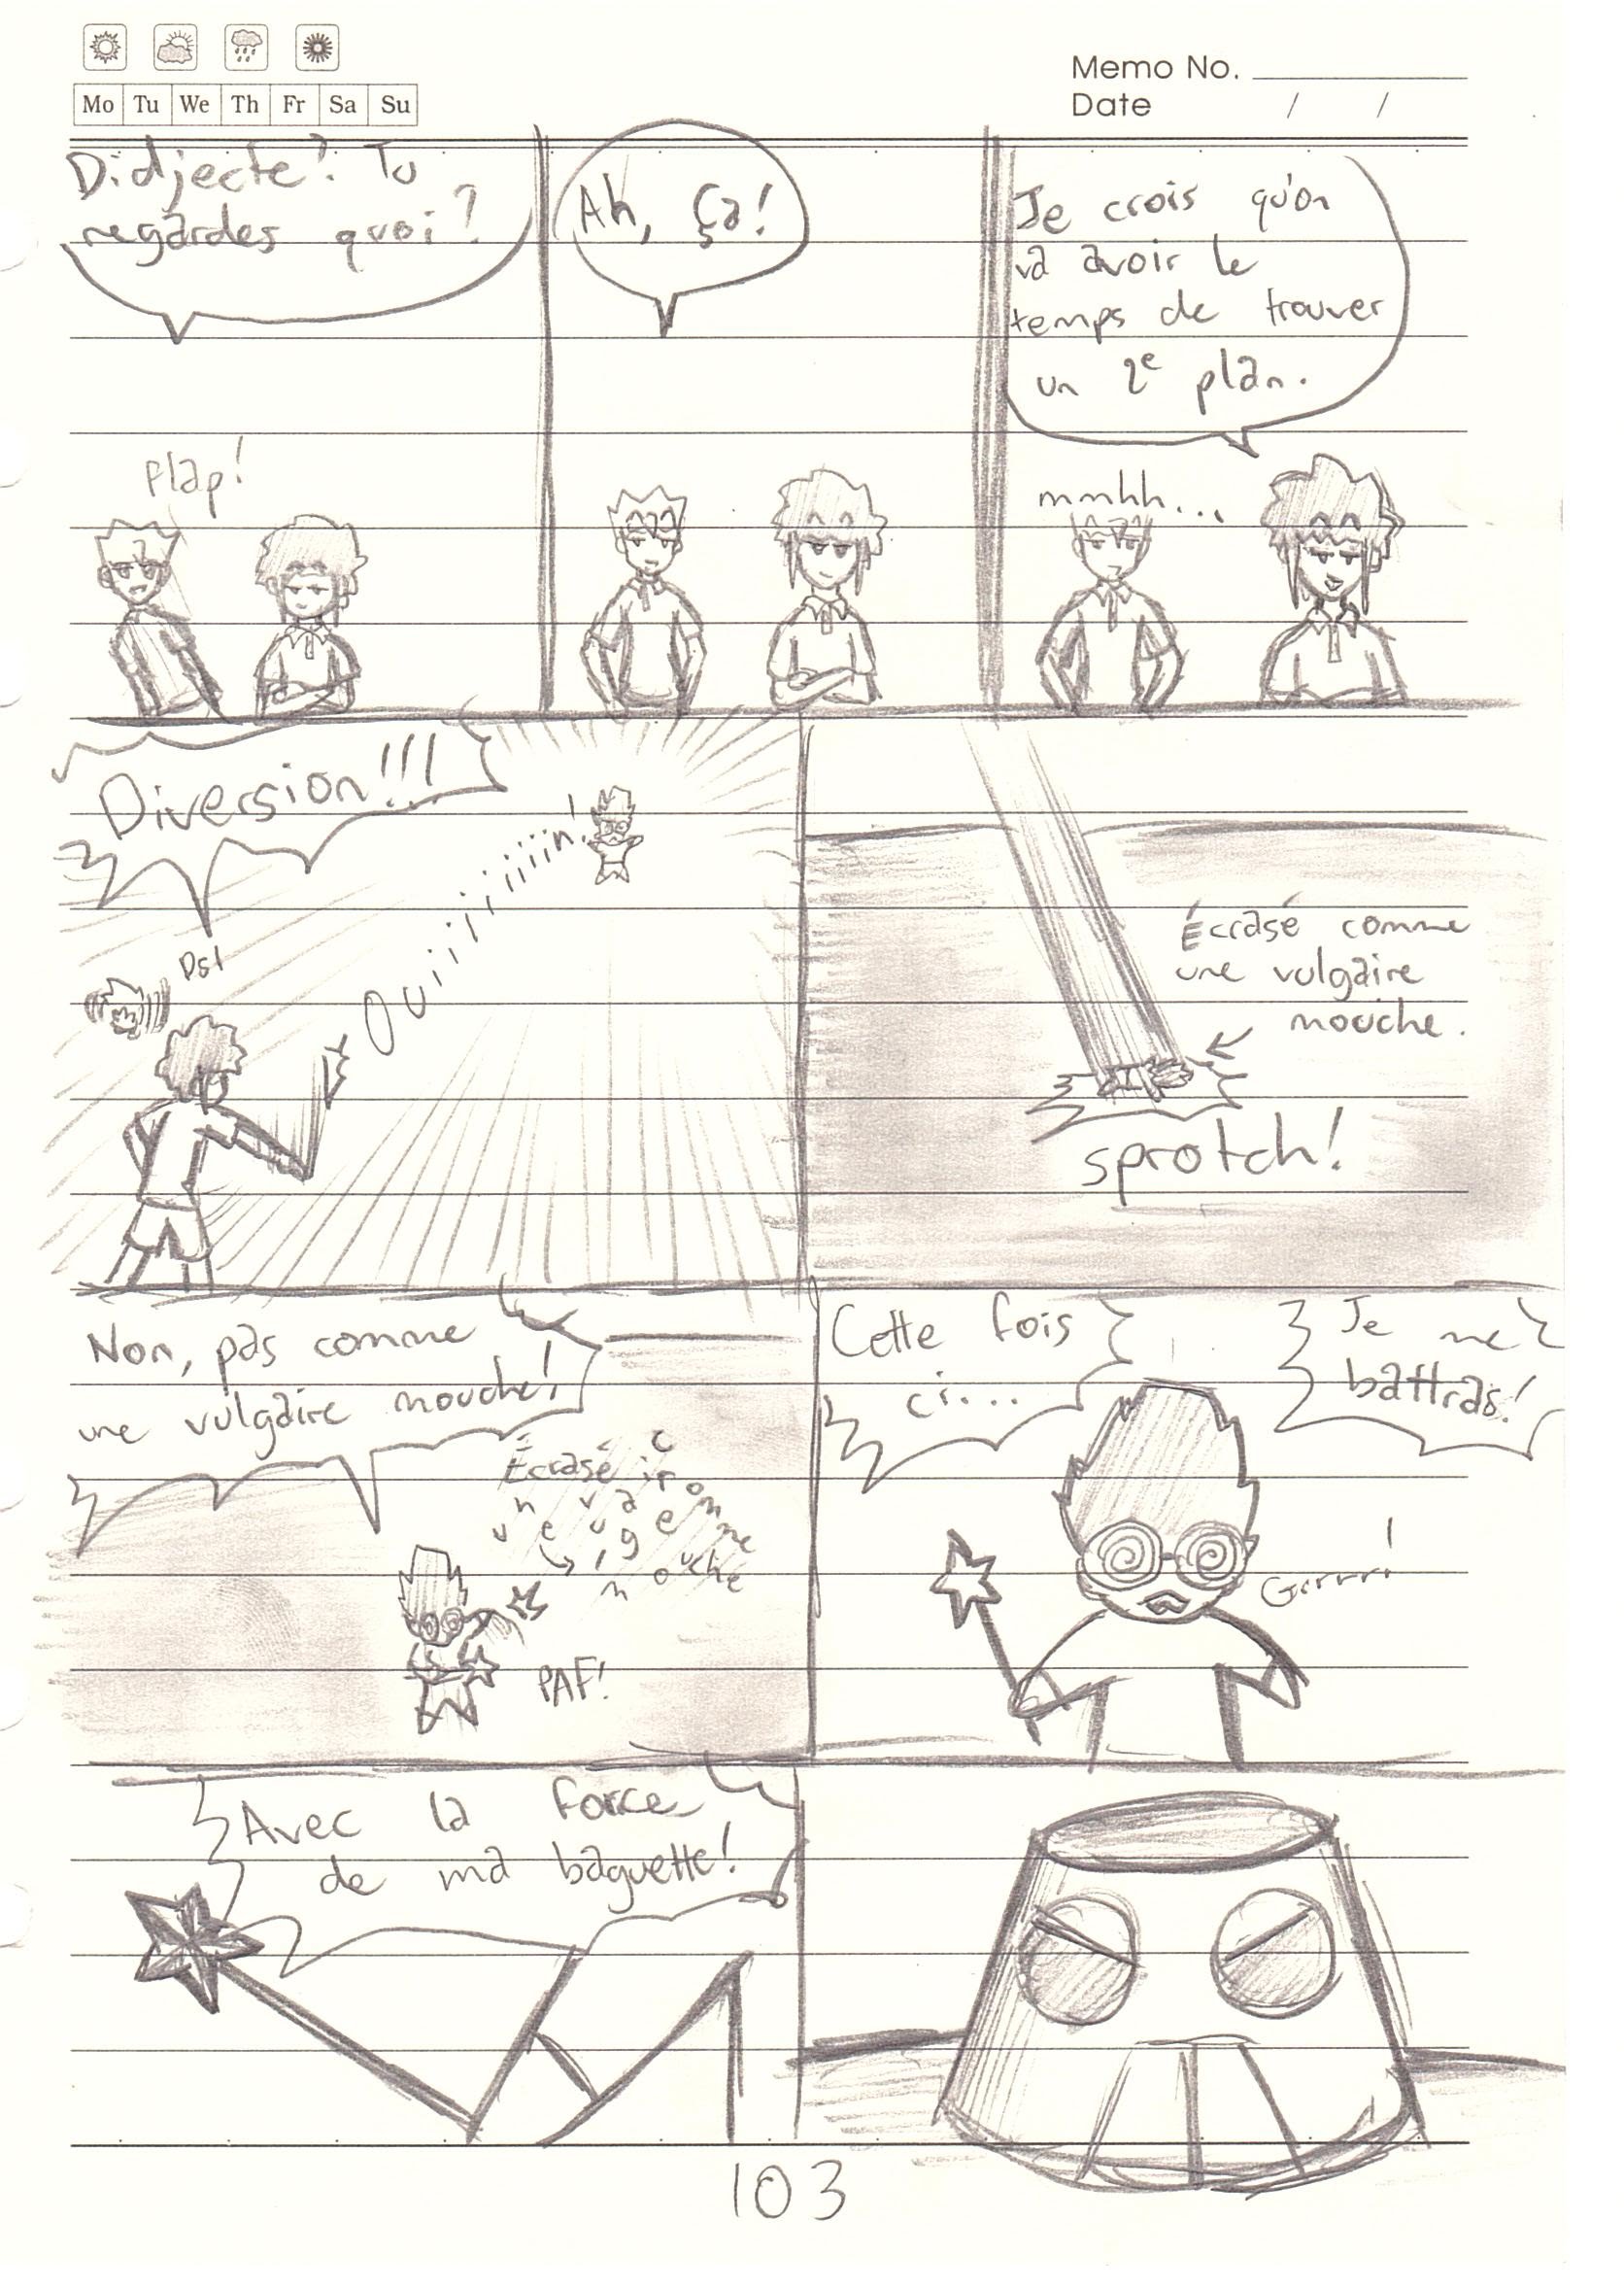 Memo No.
Mo Tu We Th Fr Sa Su
Date / /
Didjecte? Tu
regardes quoi?
flap!
Ah, Ça!
Je crois qu'on
va avoir le
temps de trouver
un 2e plan.
mmhh...
Diversion!!!
Ouiiiiiiiiiin!
Écrasé comme
une vulgaire
mouche.
sprotch!
Non, pas comme
une vulgaire mouche!
Écrasé comme
une vulgaire
mouche
PAF!
Cette fois
ci...
Je me
battras!
Grrrr!
Avec la force
de ma baguette!
103